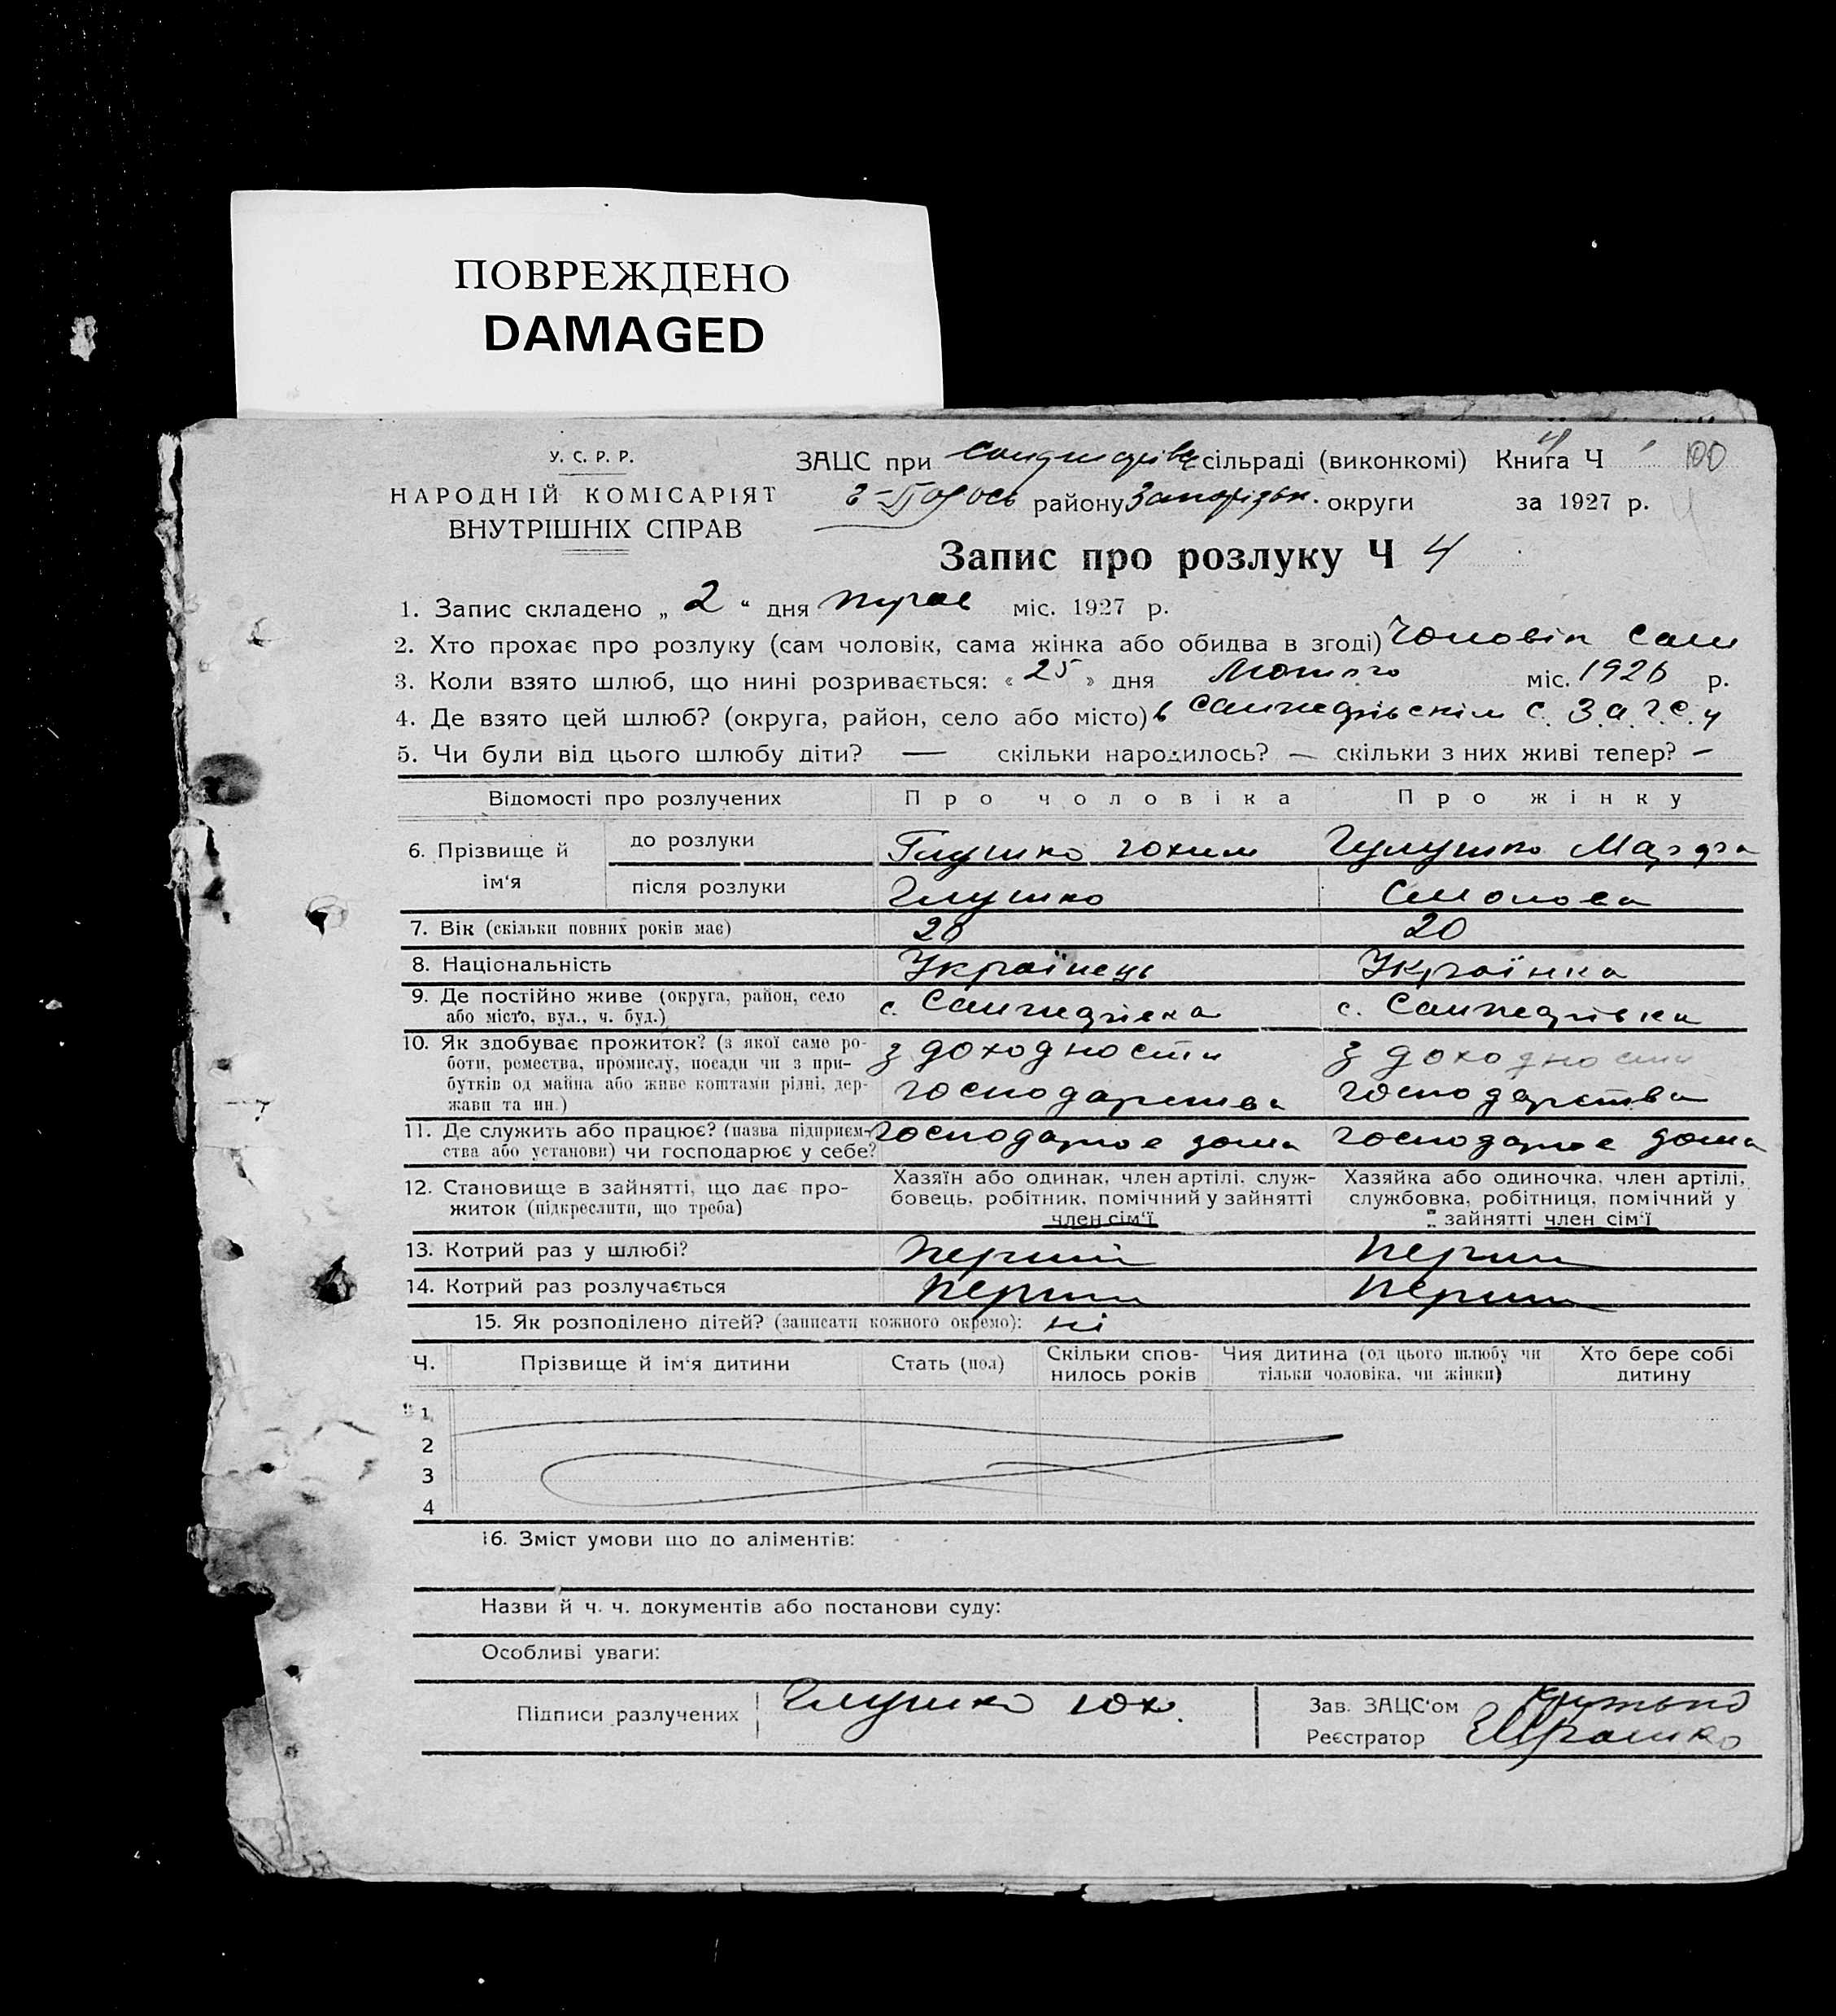 ПОВРЕЖДЕНО
DAMAGED
У. С. Р. Р.
НАРОДНІЙ КОМІСАРІЯТ
ВНУТРІШНІХ СПРАВ
ЗАЦС при сільраді (виконкомі) Книга Ч 100
району Запорізьк. округи за 1927 р.
Запис про розлуку Ч 4
1. Запис складено „ 2 “ дня міс. 1927 р.
2. Хто прохає про розлуку (сам чоловік, сама жінка або обидва в згоді) Чоловік сам
3. Коли взято шлюб, що нині розривається: « 25 » дня Лютого міс. 1926 р.
4. Де взято цей шлюб? (округа, район, село або місто) в с. З.а.г.с.у
5. Чи були від цього шлюбу діти? — скільки народилось? — скільки з них живі тепер? —
Відомості про розлучених Про чоловіка Про жінку
6. Прізвище й ім‘я
до розлуки Глушко Юхим Гулушко Марфа
після розлуки Глушко Смолова
7. Вік (скільки повних років має) 20 20
8. Національність Українець Українка
9. Де постійно живе (округа, район, село або місто, вул., ч. буд.) с. Санжедрівка с. Санжедрівка
10. Як здобуває прожиток? (з якої саме роботи, ремества, промислу, посади чи з прибутків од майна або живе коштами рідні, держави та ин.) з доходности господарства з доходности господарства
11. Де служить або працює? (назва підприємства або установи) чи господарює у себе? господарює дома господарює дома
12. Становище в зайнятті, що дає прожиток (підкреслити, що треба)
Хазяїн або одинак, член артілі, службовець, робітник, помічний у зайнятті член сім‘ї
Хазяйка або одиночка, член артілі, службовка, робітниця, помічний у зайнятті член сім‘ї
13. Котрий раз у шлюбі? перший перший
14. Котрий раз розлучається перший перший
15. Як розподілено дітей? (записати кожного окремо): ні
Ч. Прізвище й ім‘я дитини Стать (пол) Скільки сповнилось років Чия дитина (од цього шлюбу чи тільки чоловіка, чи жінки) Хто бере собі дитину
1
2
3
4
16. Зміст умови що до аліментів:
Назви й ч. ч. документів або постанови суду:
Особливі уваги:
Підписи разлучених Глушко Юх. Зав. ЗАЦС‘ом
Реєстратор